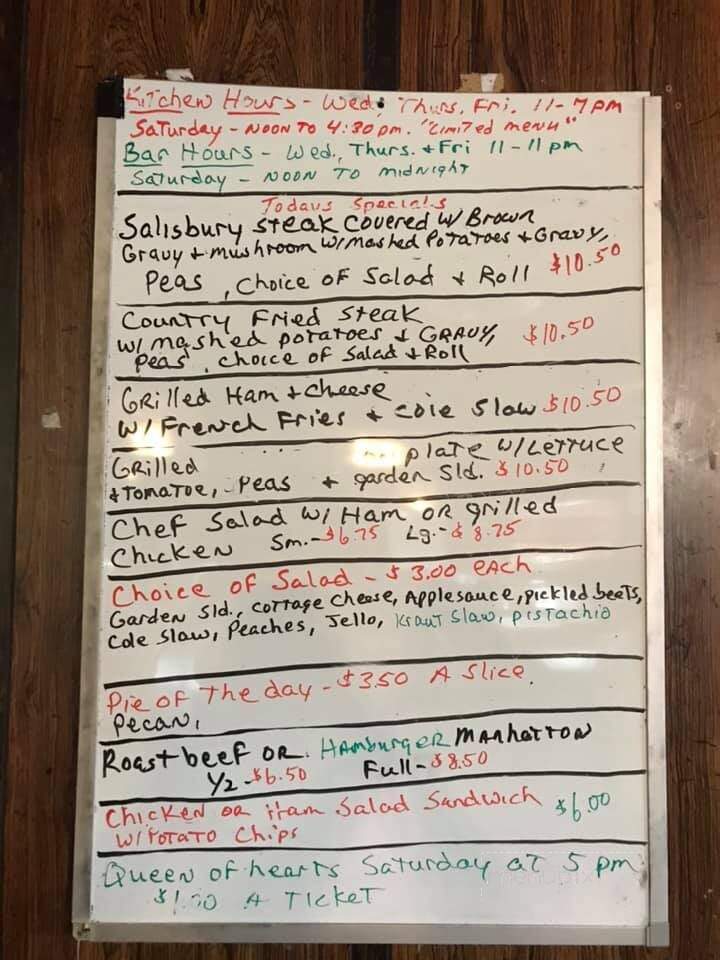 Kitchen Hours - Wed, Thurs, Fri. 11-7pm
Saturday - NOON TO 4:30 pm. "Limited menu"
Bar Hours - Wed., Thurs. + Fri 11-11pm
Saturday - NOON TO midnight
Todays Specials
Salisbury steak covered w/ Brown
Gravy + mushroom w/mashed Potatoes + Gravy,
Peas, Choice of Salad + Roll $10.50
Country Fried Steak
w/ mashed potatoes + GRAVY, $10.50
Peas, choice of Salad + Roll
Grilled Ham + cheese
w/ French Fries + cole slaw $10.50
Grilled plate w/Lettuce
+ Tomatoe, Peas + garden Sld. $10.50
Chef Salad w/ Ham OR grilled
Chicken Sm.-$6.75 Lg.-$8.75
Choice of Salad - $3.00 each
Garden Sld., cottage cheese, Applesauce, pickled beets,
Cole Slaw, Peaches, Jello, Kraut Slaw, pistachio
Pie of The day - $3.50 A Slice.
Pecan,
Roast beef OR Hamburger Manhatton
1/2 - $6.50 Full - $8.50
Chicken OR Ham Salad Sandwich $6.00
w/Potato Chips
Queen of hearts Saturday at 5 pm
$1.00 A Ticket